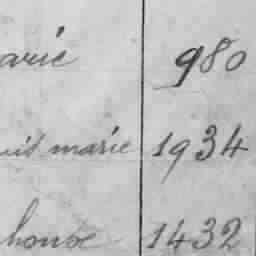 arie 980
uis marie 1934
honse 1432